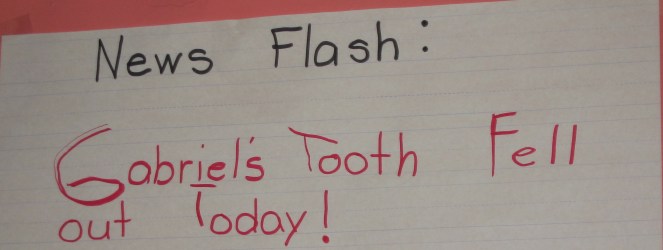 News Flash:
Gabriel's Tooth Fell
out Today!